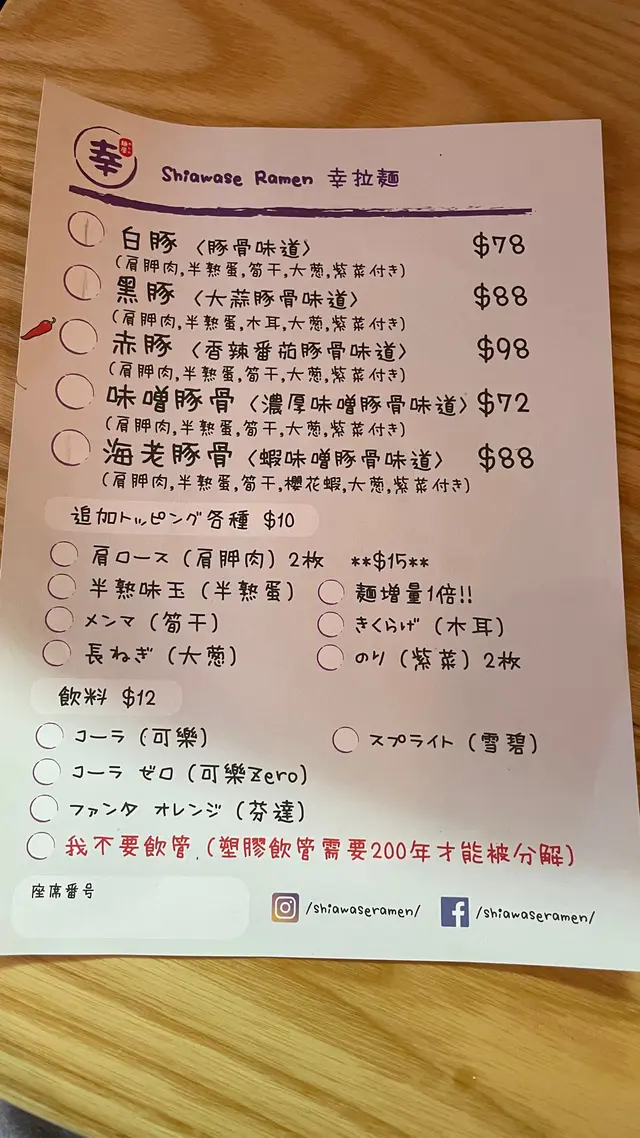 幸 麺屋
Shiawase Ramen 幸拉麵
白豚〈豚骨味道〉 $78
(肩胛肉,半熟蛋,筍干,大葱,紫菜付き)
黑豚〈大蒜豚骨味道〉 $88
(肩胛肉,半熟蛋,木耳,大葱,紫菜付き)
赤豚〈香辣番茄豚骨味道〉 $98
(肩胛肉,半熟蛋,筍干,大葱,紫菜付き)
味噌豚骨〈濃厚味噌豚骨味道〉 $72
(肩胛肉,半熟蛋,筍干,大葱,紫菜付き)
海老豚骨〈蝦味噌豚骨味道〉 $88
(肩胛肉,半熟蛋,筍干,櫻花蝦,大葱,紫菜付き)
追加トッピング各種 $10
肩ロース(肩胛肉)2枚 **$15**
半熟味玉(半熟蛋) 麵增量1倍!!
メンマ(筍干) きくらげ(木耳)
長ねぎ(大葱) のり(紫菜)2枚
飲料 $12
コーラ(可樂) スプライト(雪碧)
コーラ ゼロ(可樂Zero)
ファンタ オレンジ(芬達)
我不要飲管.(塑膠飲管需要200年才能被分解)
座席番号
/shiawaseramen/ /shiawaseramen/